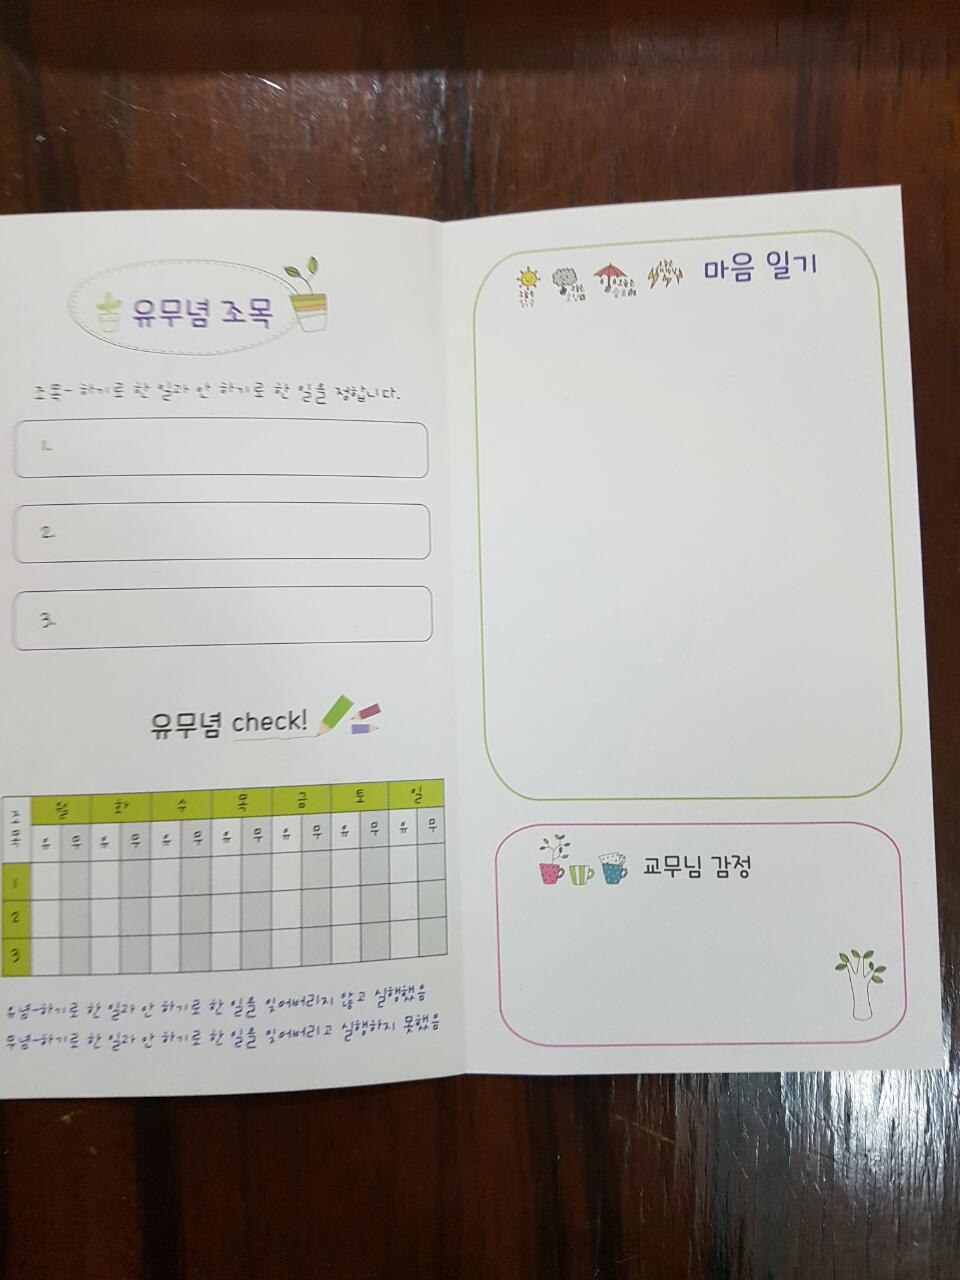 유무념 조목
조목- 하기로 한 일과 안 하기로 한 일을 정합니다.
1.
2.
3.
유무념 check!
조목 월 화 수 목 금 토 일
유 무 유 무 유 무 유 무 유 무 유 무 유 무
1
2
3
유념-하기로 한 일과 안 하기로 한 일을 잊어버리지 않고 실행했음
무념-하기로 한 일과 안 하기로 한 일을 잊어버리고 실행하지 못했음
마음 일기
교무님 감정